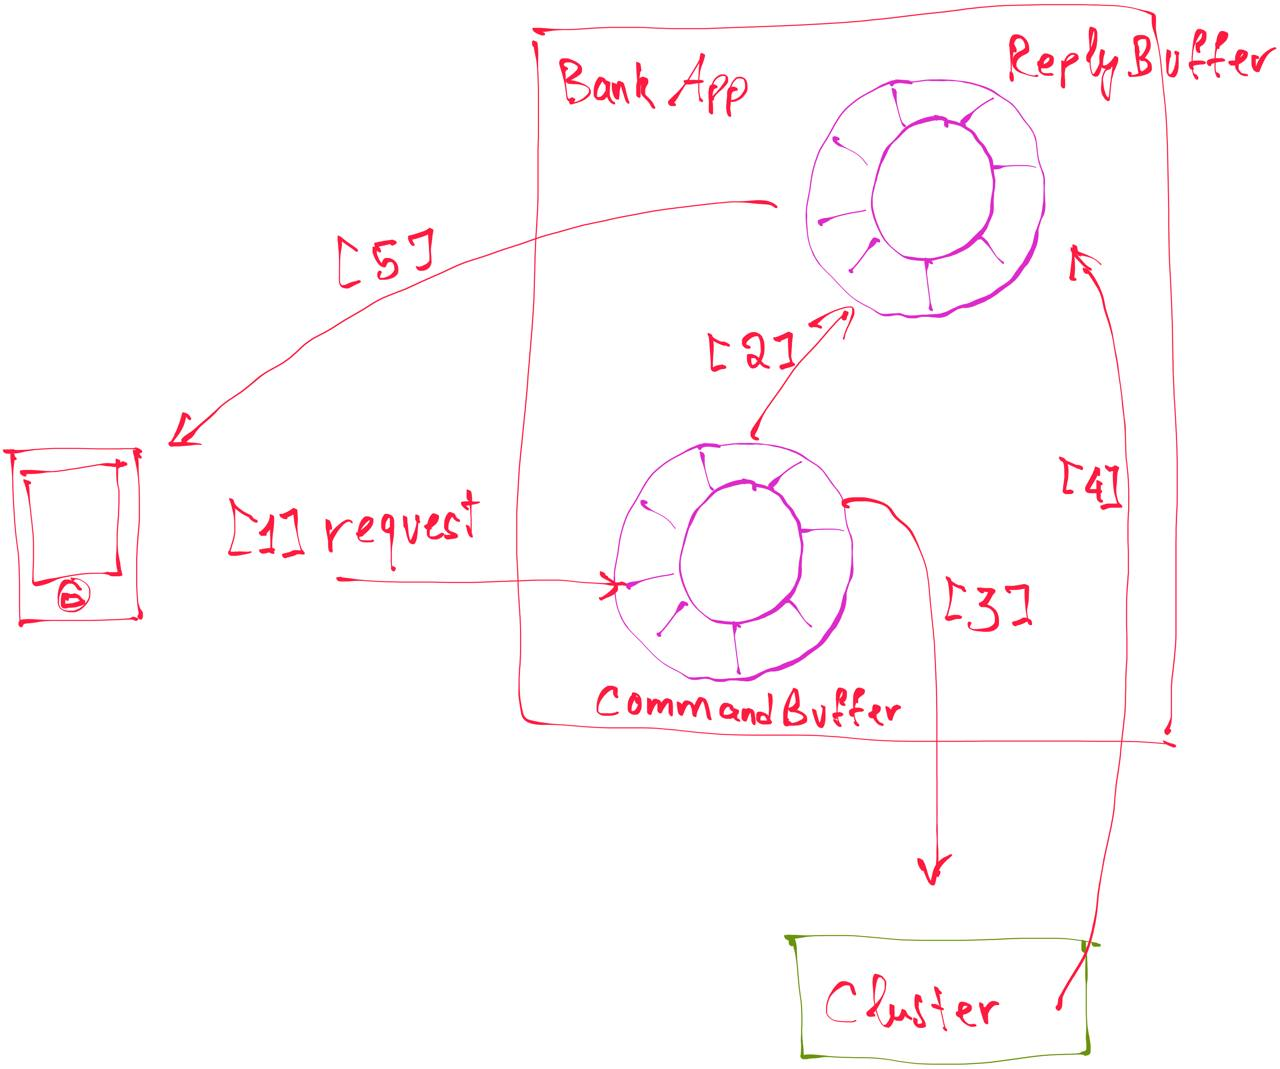 Bank App
ReplyBuffer
[5]
[2]
[1] request
[4]
[3]
CommandBuffer
Cluster